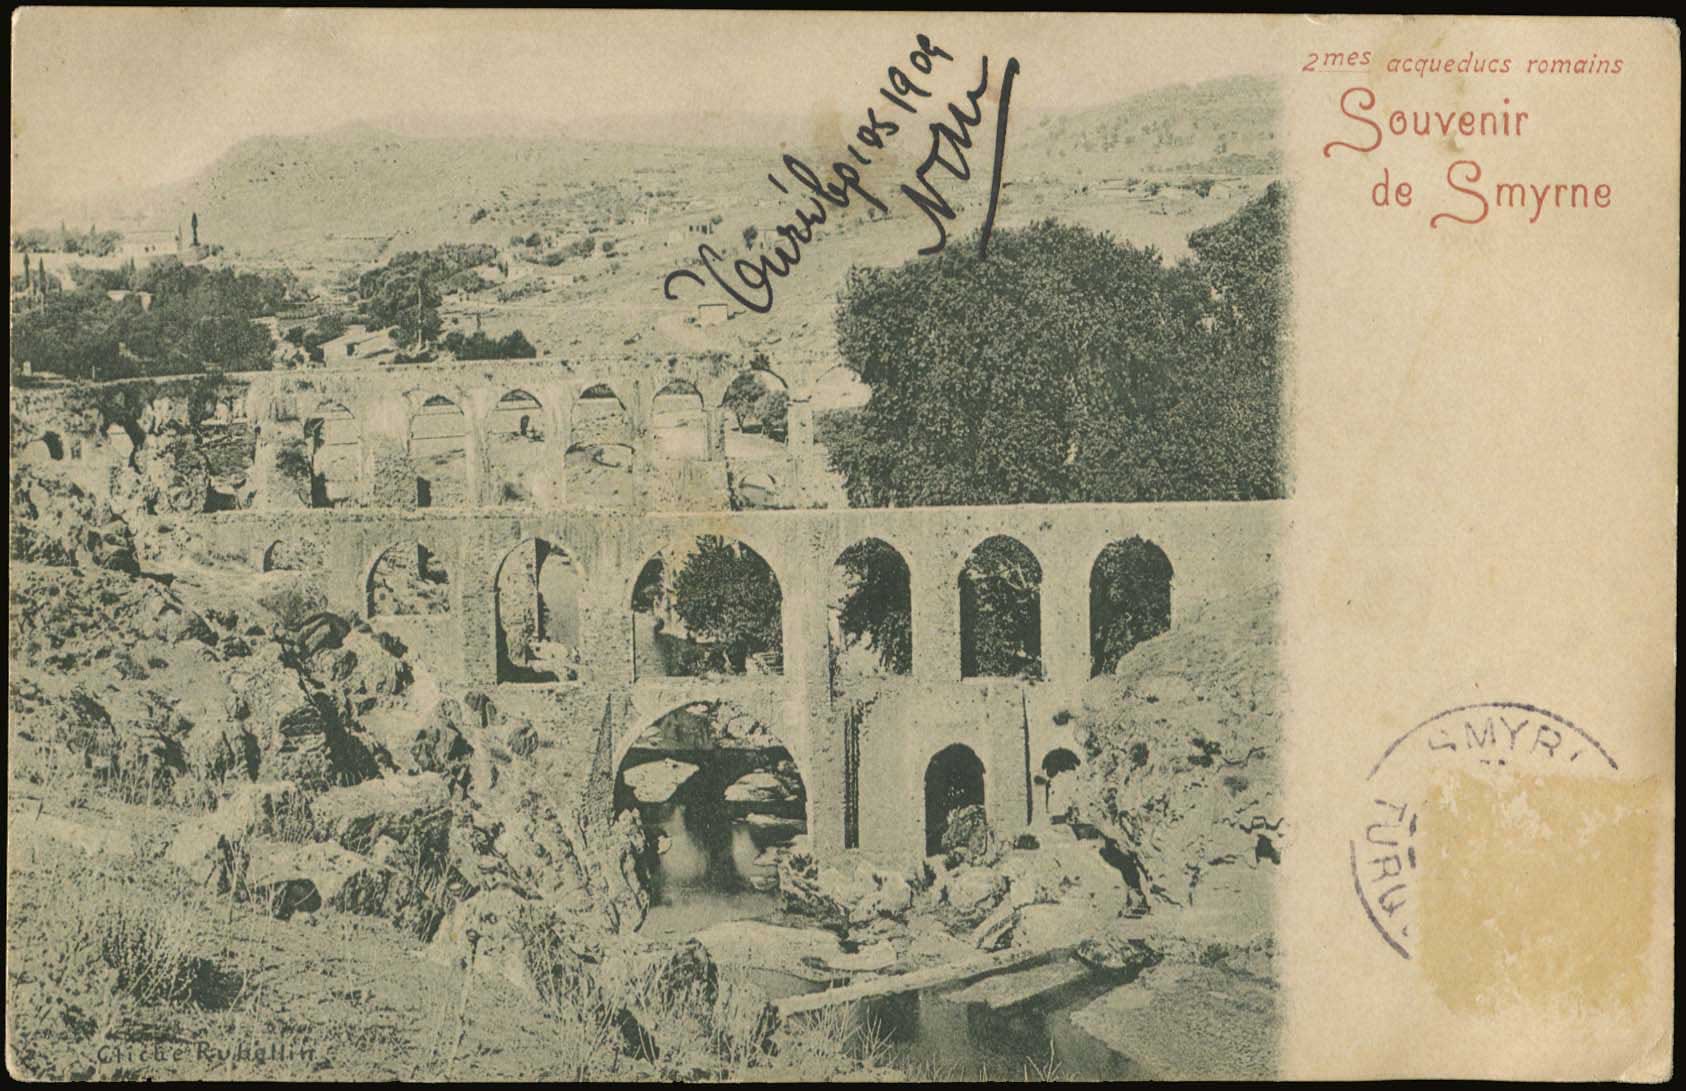 2mes acqueducs romains
Souvenir
de Smyrne
1909
SMYR
TURQ
Cliché Rubellin